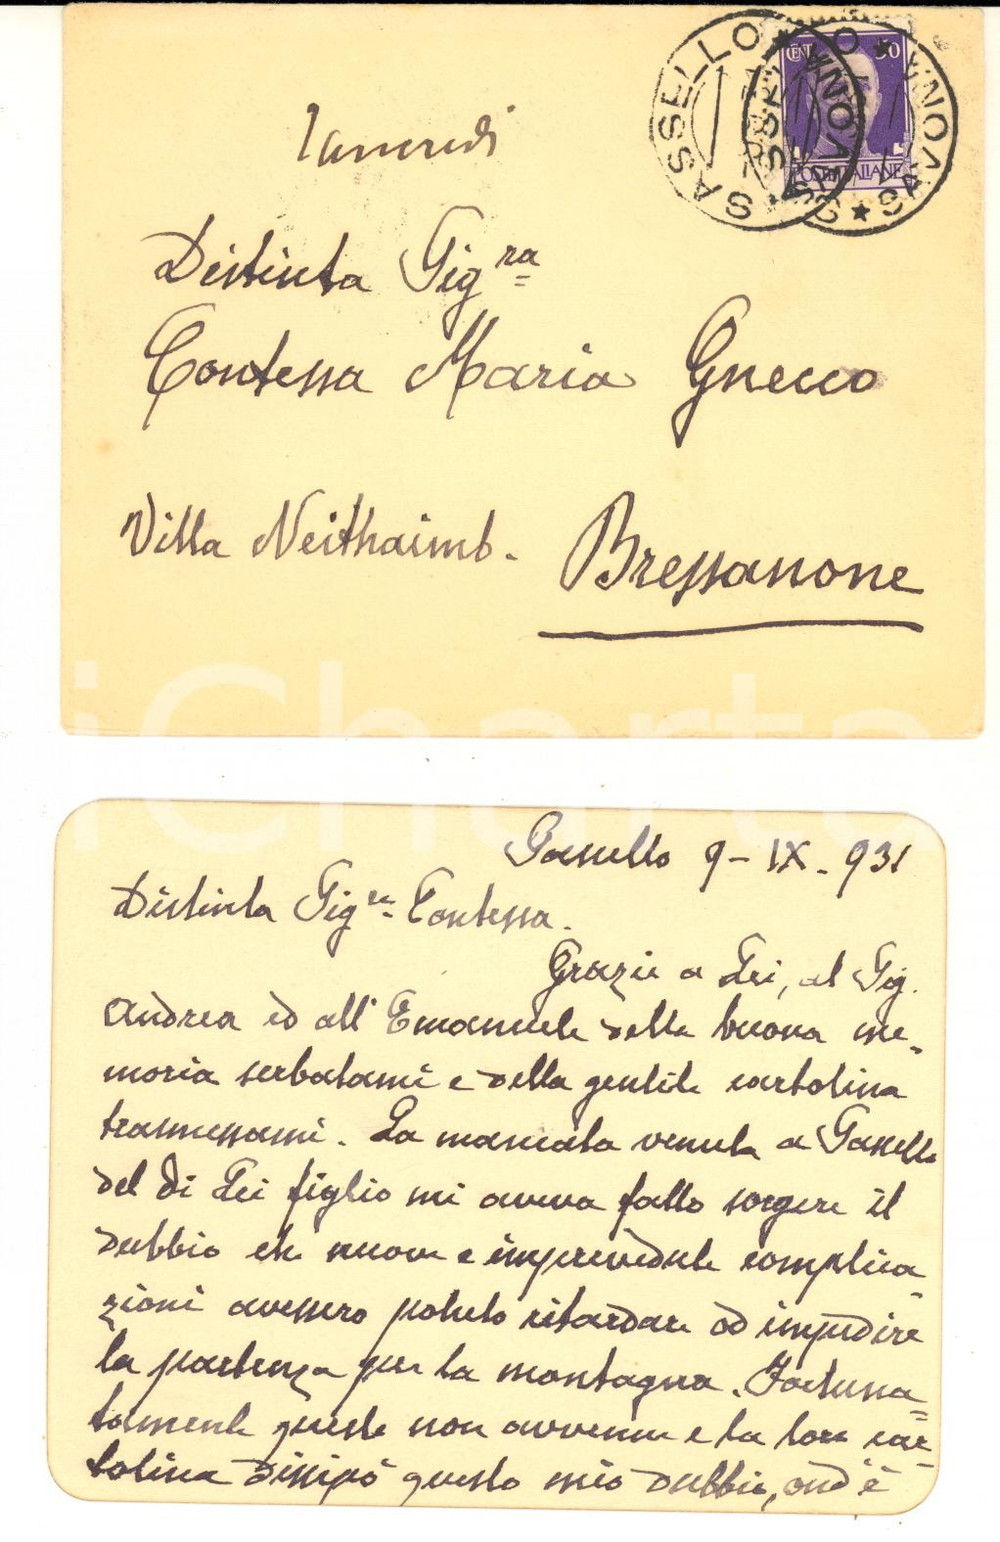 SASSELLO
SAVONA
CENT 50
POSTE ITALIANE
Distinta Sig.ra
Contessa Maria Gnecco
Villa Neithaimb.
Bressanone
iCharta
Sassello 9-IX-931
Distinta Sig.ra Contessa.
Grazie a Lei, al Sig.
Andrea ed all'Emanuele della buona me-
moria serbatami e della gentile cartolina
trasmessami. La mancata venuta a Sassello
del di Lei figlio mi aveva fatto sorgere il
dubbio che nuove e imprevedute complica-
zioni avessero potuto ritardare od impedire
la partenza per la montagna. Fortuna=
tamente questo non avvenne e la loro car=
tolina dissipò questo mio dubbio, ond'è